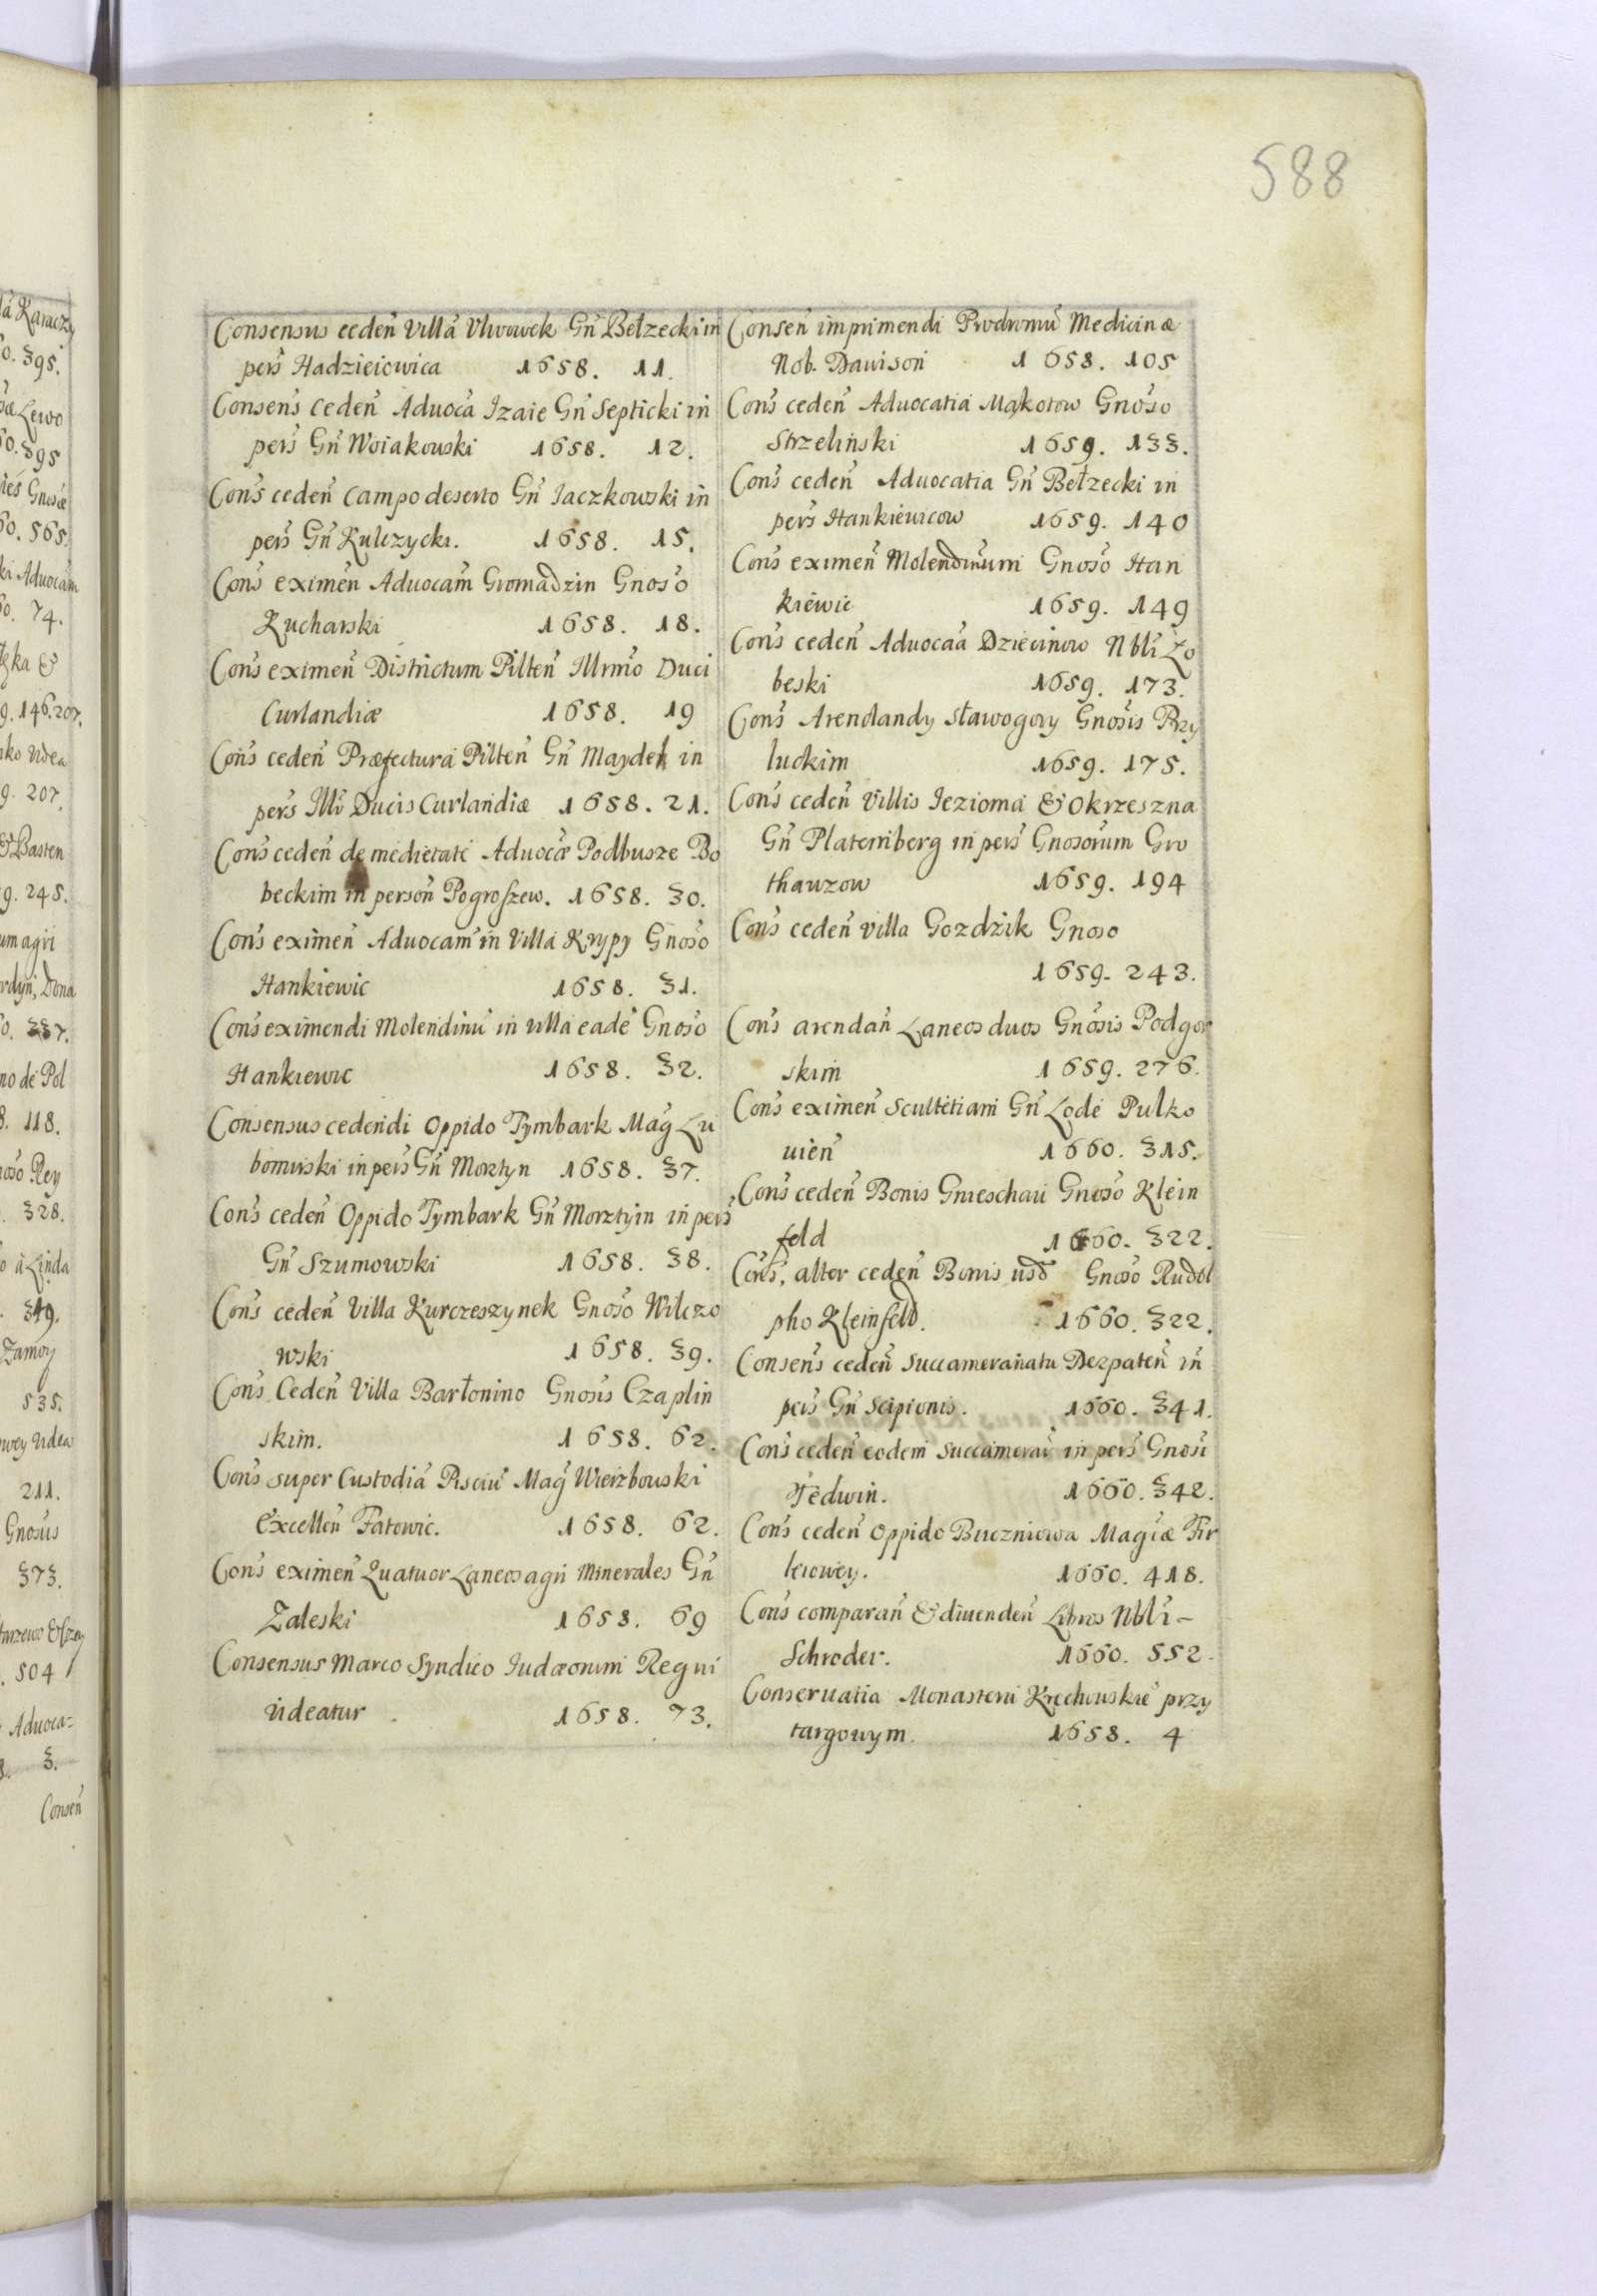 588
Consensus ceden Villa Uhrowek Gn̄ Bełzecki in
pers Hadzieiowica 1658. 11.
Consens ceden Aduoca Izaie Gn̄ Septicki in
pers Gn̄ Woiakowski 1658. 12.
Cons ceden Campo deserto Gn̄ Iaczkowski in
pers Gn̄ Kulczycki. 1658. 15.
Cons eximen Aduocam Gromadzin Gnoso
Kucharski 1658. 18.
Cons eximen Districtum Pilten Illrmo Duci
Curlandiæ 1658. 19
Cons ceden Præfectura Pilten Gn̄ Maydel in
pers Illi Ducis Curlandiæ 1658. 21.
Cons ceden de medietate Aduocæ Podbusze Bo
beckim in person Pogroszew. 1658. 30.
Cons eximen Aduocam in Villa Krypy Gnoso
Hankiewic 1658. 31.
Cons eximendi Molendinu in villa eade Gnoso
Hankiewic 1658. 32.
Consensus cedendi Oppido Tymbark Mag Lu
bomirski in pers Gn̄ Morztyn 1658. 37.
Cons ceden Oppido Tymbark Gn̄ Morztyin in pers
Gn̄ Szumowski 1658. 38.
Cons ceden Villa Kurczeszynek Gnoso Wilczo
wski 1658. 39.
Cons Ceden Villa Bartonino Gnosis Czaplin
skim. 1658. 62.
Cons super Custodia Pisciu Mag Wierzbouski
Excellen Fatowic. 1658. 62.
Cons eximen Quatuor Laneos agri Minerales Gn̄
Zaleski 1658. 69
Consensus Marco Syndico Iudæorum Regni
uideatur 1658. 73.
Consen imprimendi Prodromu Medicinæ
Nob. Dauison 1658. 105
Cons ceden Aduocatia Mąkotow Gnoso
Strzelinski 1659. 133.
Cons ceden Aduocatia Gn̄ Bełzecki in
pers Hankiewicow 1659. 140
Cons eximen Molendinum Gnoso Han
kiewic 1659. 149
Cons ceden Aduocaa Dziecinow Nbli Zo
beski 1659. 173.
Cons Arendandy Sławogory Gnosis Przy
luckim 1659. 175.
Cons ceden Villis Iezioma & Okrzeszna
Gn̄ Platemberg in pers Gnosorum Gro
thauzow 1659. 194
Cons ceden villa Gozdzik Gnoso
1659. 243.
Cons arendan Laneos duos Gnosis Podgor
skim 1659. 276.
Cons eximen Scultetiam Gn̄ Lode Pulko
uien 1660. 315.
Cons ceden Bonis Gnieschau Gnoso Klein
feld 1660. 322.
Cons, alter ceden Bonis usd Gnoso Rudol
pho Kleinfeld. 1660. 322.
Consens ceden Succameranatu Derpaten in
pers Gn̄ Scipionis. 1660. 341.
Cons ceden eodem Succamerar in pers Gnosi
Tedwin. 1660. 342.
Cons ceden Oppido Buczniowa Magcæ Fir
leiowey. 1660. 418.
Cons comparan & diuenden Libros Nbli-
Schroder. 1660. 552.
Conseruatia Monasterii Krechouskie przy
targowym. 1658. 4